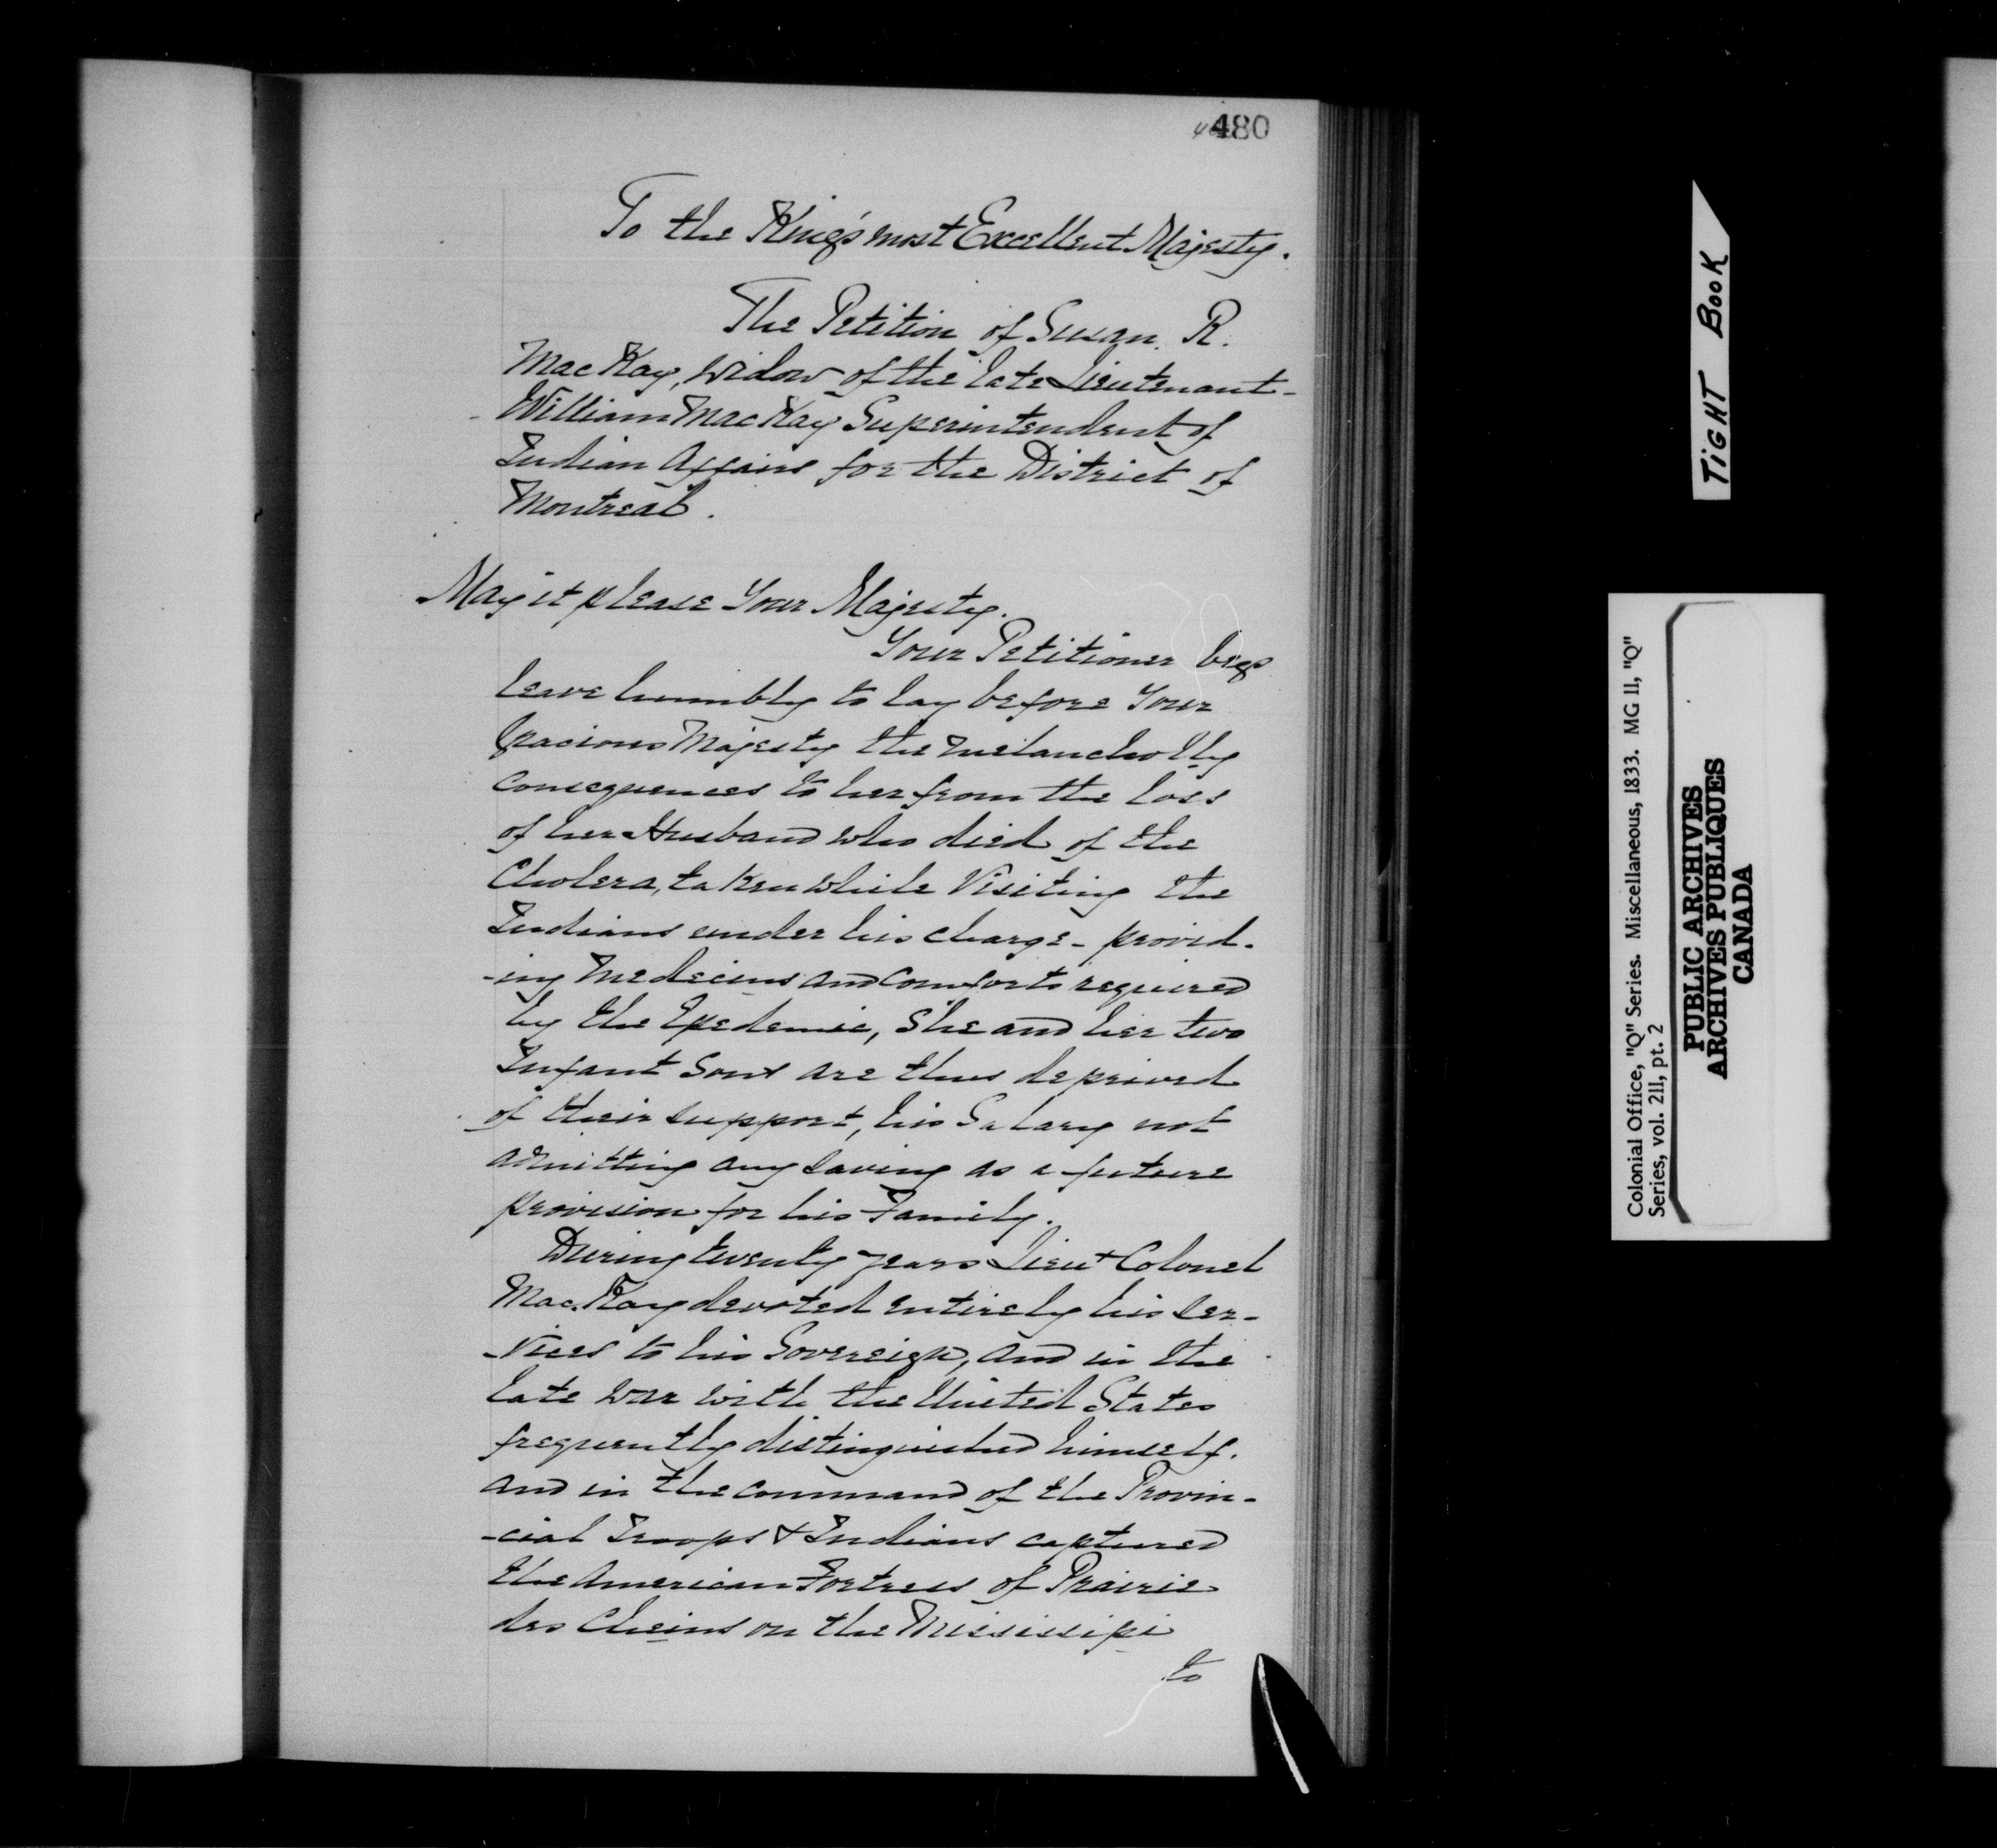 480
To the King's most Excellent Majesty.
The Petition of Susan. R.
MacKay, Widow of the late Lieutenant-
William MacKay Superintendent of
Indian Affairs for the District of
Montreal.
May it please Your Majesty.
Your Petitioner begs
leave humbly to lay before Your
Gracious Majesty the Melancholly
Consequences to her from the loss
of her Husband who died of the
Cholera, taken while Visiting the
Indians under his charge - provid-
-ing Medecins and Comforts required
by the Epedemic, She and her two
Infant Sons are thus deprived
of their support, his Salary not
admitting any saving as a future
provision for his Family.
During twenty years Lieut Colonel
MacKay devoted entirely his Ser-
-vices to his Sovereign, and in the
late War with the United States
frequently distinguished himself.
and in the command of the Provin-
-cial Troops & Indians captured
the American Fortress of Prairie
des Cheins on the Missisipi
to
TIGHT BOOK
Colonial Office, "Q" Series. Miscellaneous, 1833. MG 11, "Q"
Series, vol. 211, pt. 2
PUBLIC ARCHIVES
ARCHIVES PUBLIQUES
CANADA